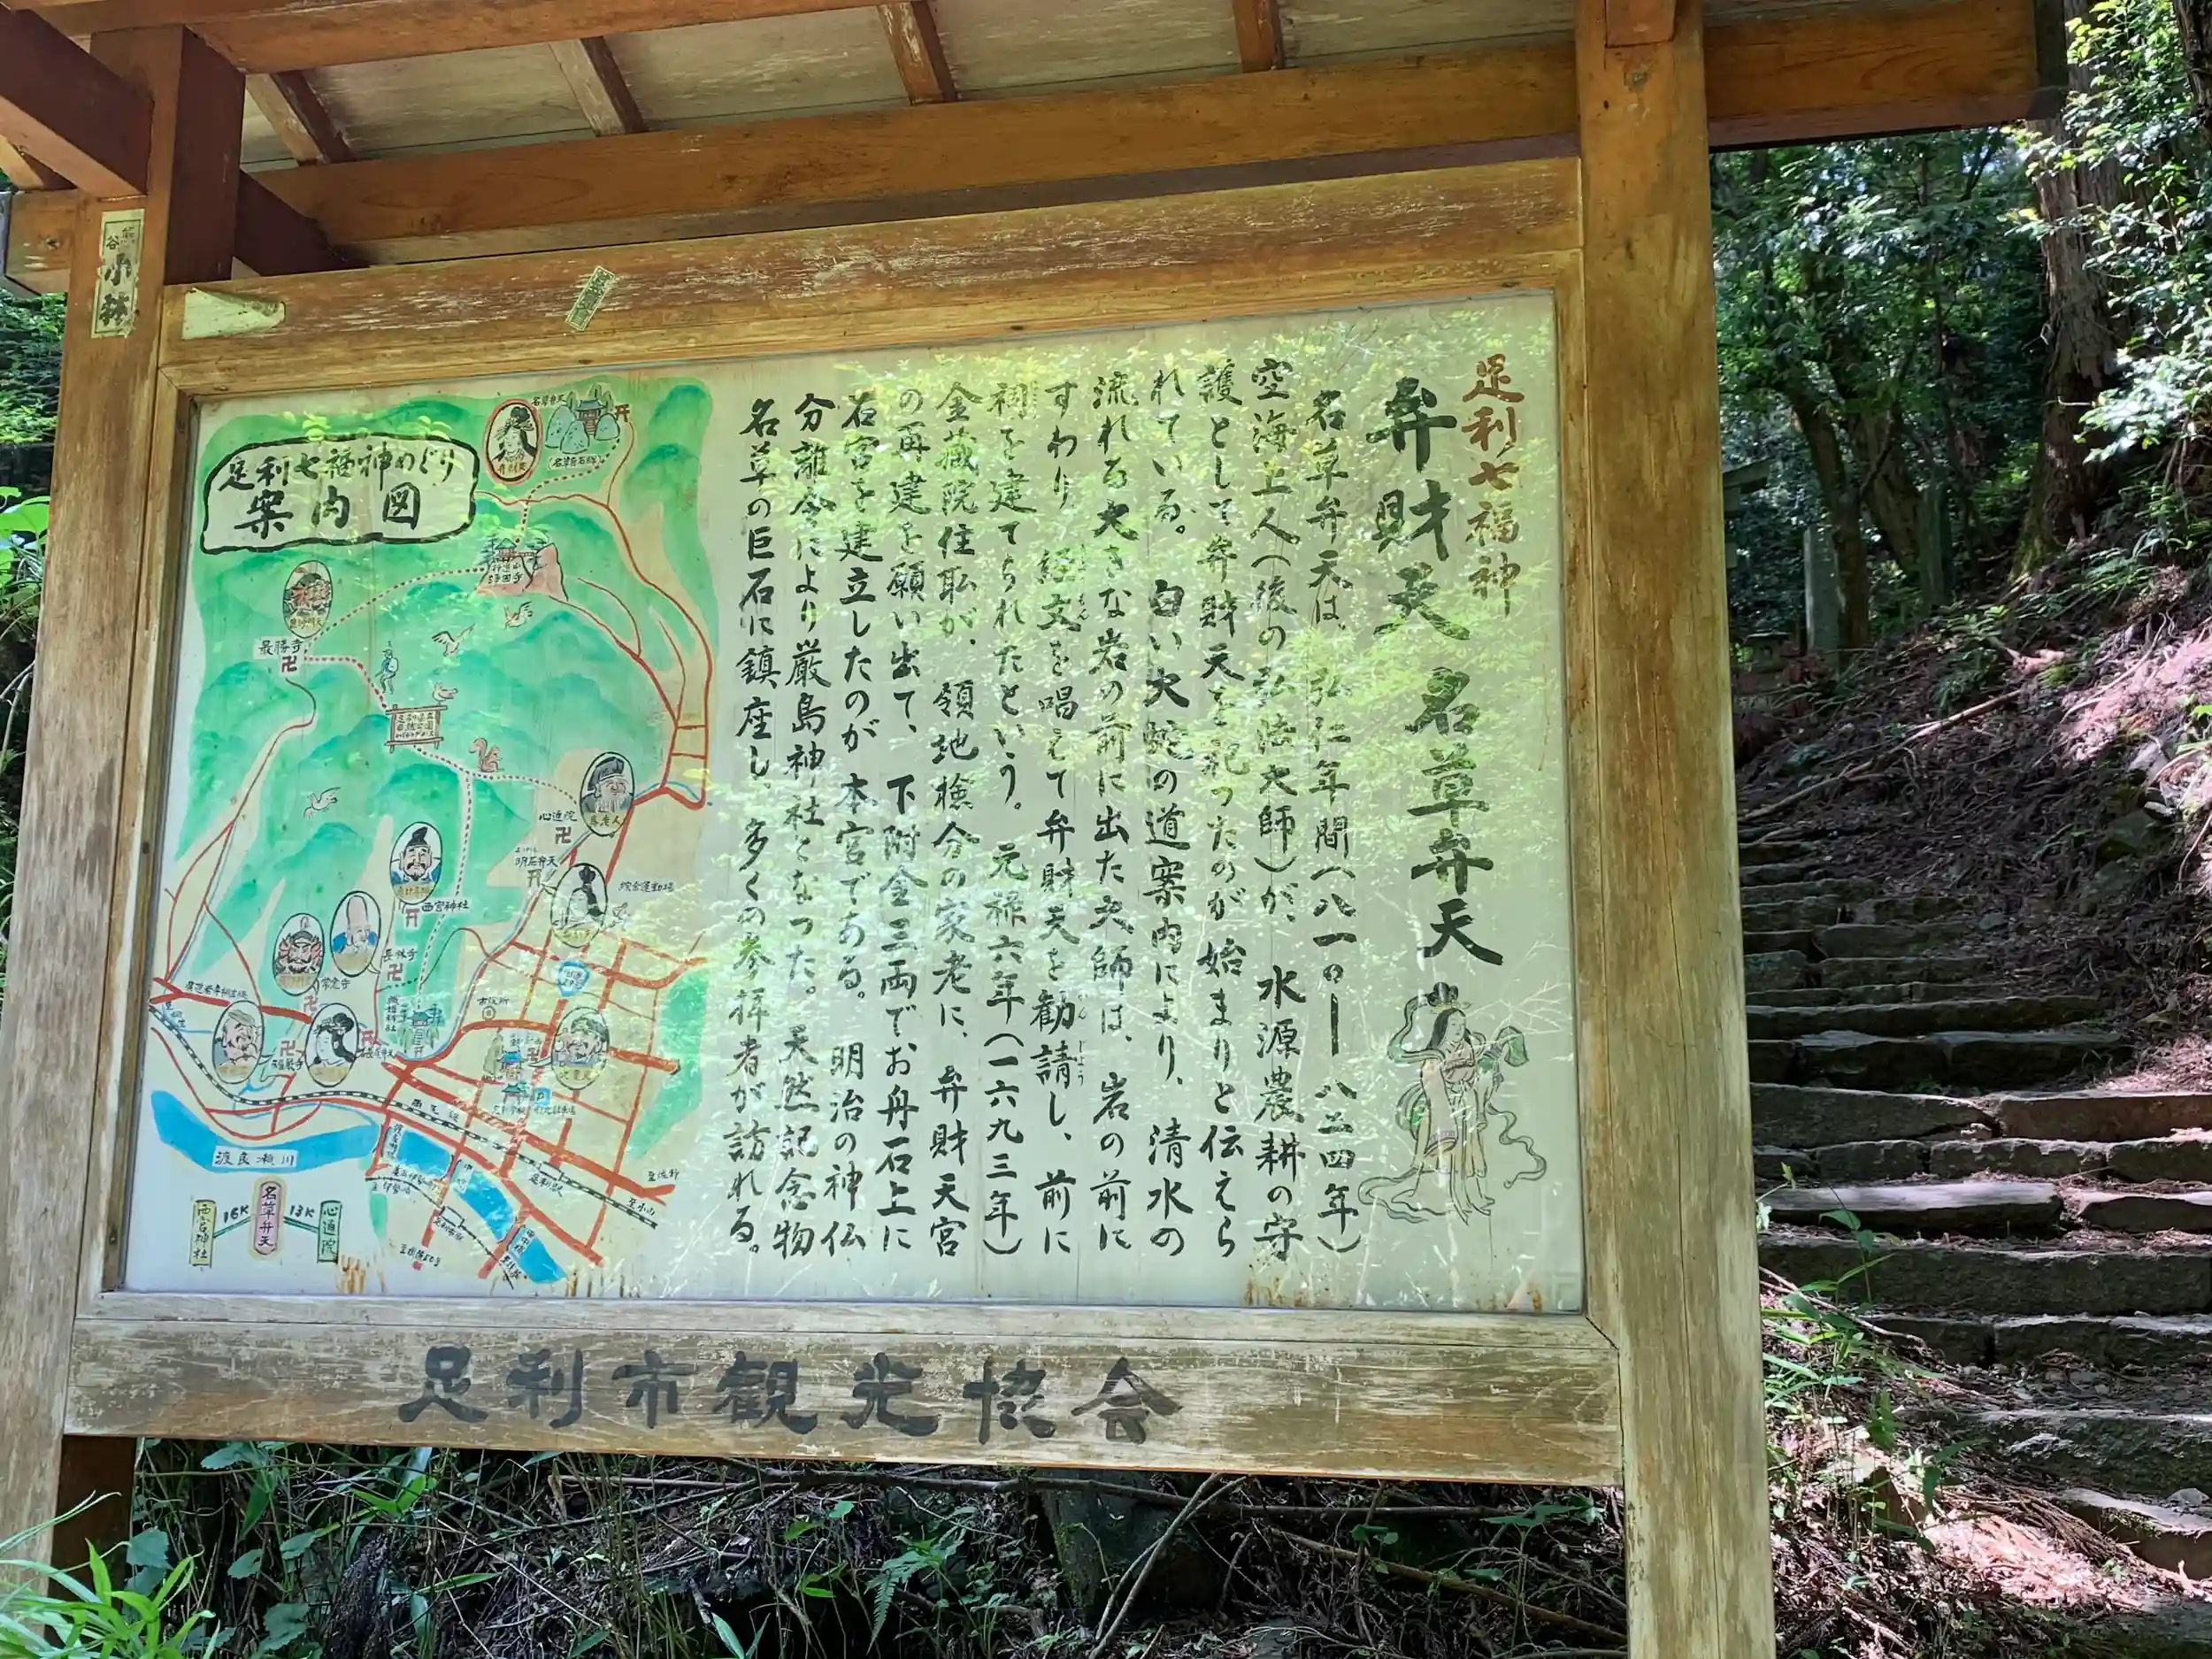 足利七福神
弁財天 名草弁天
名草弁天は、弘仁年間(八一〇ー八二四年)
空海上人(後の弘法大師)が、水源農耕の守
護として弁財天を祀ったのが始まりと伝えら
れている。白い大蛇の道案内により、清水の
流れる大きな岩の前に出た大師は、岩の前に
すわり、経文を唱えて弁財天を勧請し、前に
祠を建てられたという。元禄六年(一六九三年)
金蔵院住職が、領地検分の家老に、弁財天宮
の再建を願い出て、下附金三両でお舟石上に
石宮を建立したのが本宮である。明治の神仏
分離令により厳島神社となった。天然記念物
名草の巨石に鎮座し、多くの参拝者が訪れる。
足利七福神めぐり
案内図
名草弁天
最勝寺
心通院
明石弁天
西宮神社
長林寺
常念寺
福厳寺
市役所
両毛線
足利駅
至佐野
至小山
渡良瀬川
西宮神社
16K
名草弁天
13K
心通院
足利市観光協会
小林